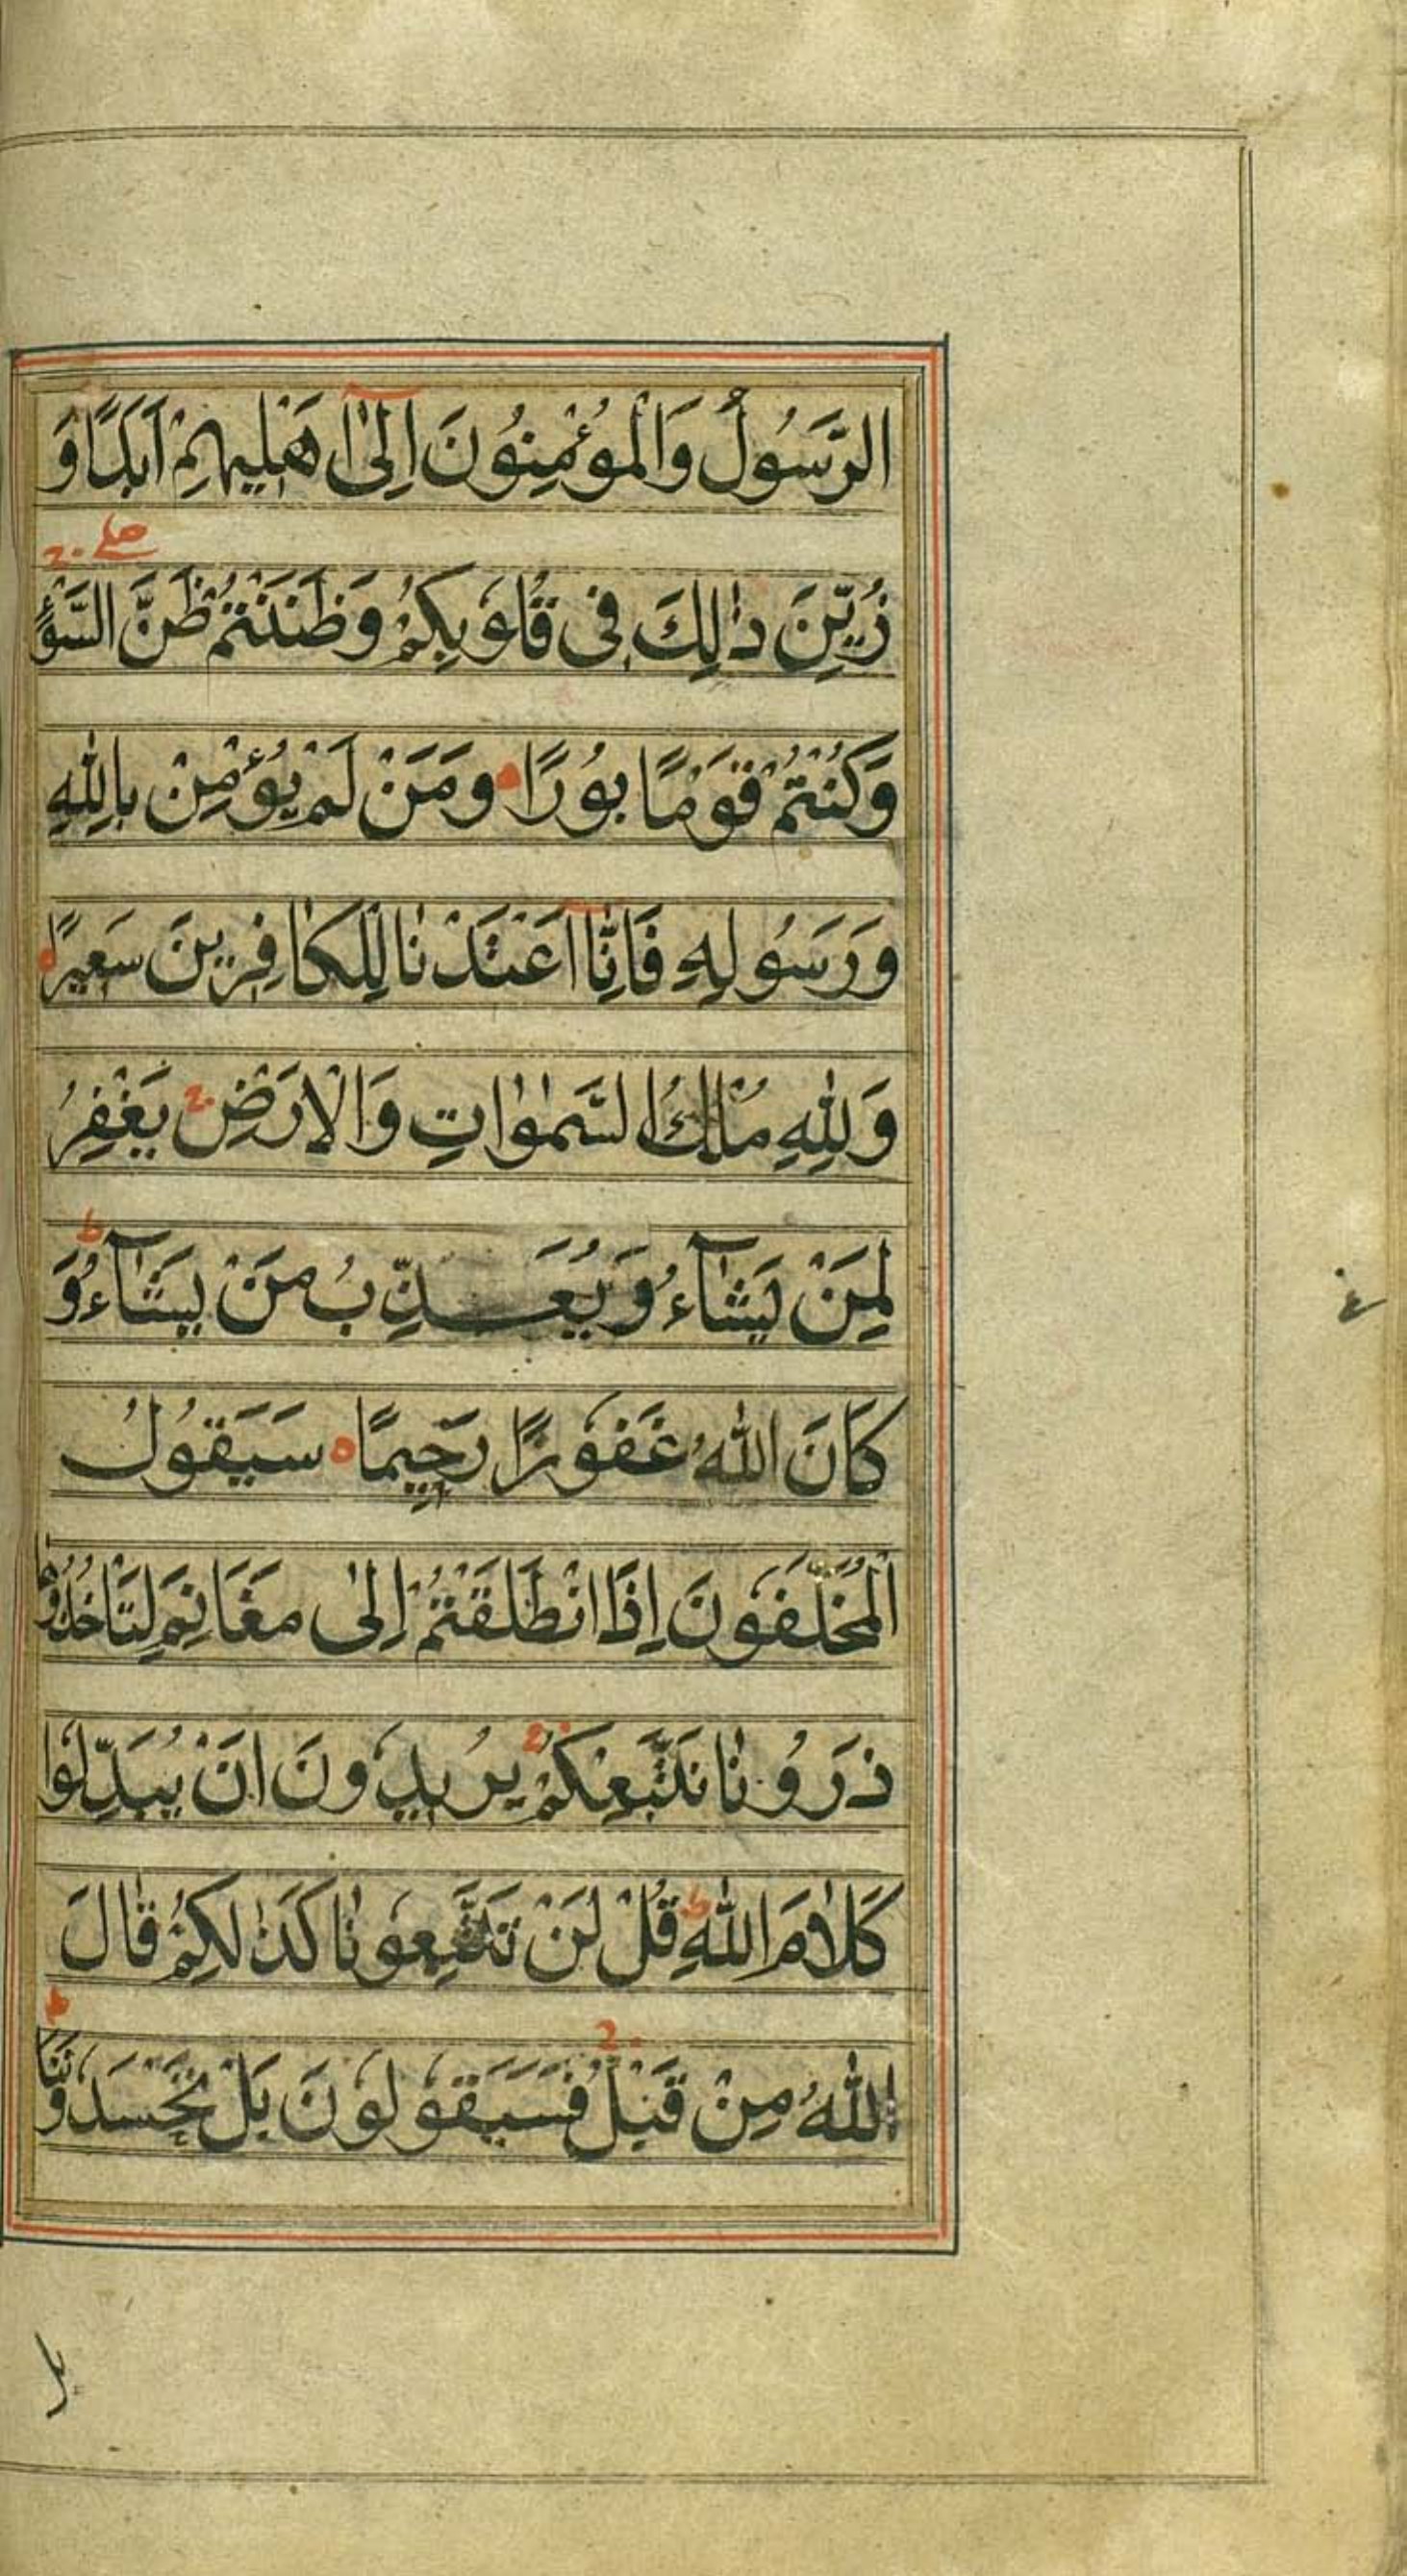 الرَّسُولُ وَالْمُؤْمِنُونَ اِلٰٓى اَهْلِيهِمْ اَبَدًا وَ
صلے ج
زُيِّنَ ذٰالِكَ فِى قُلُوبِكُمْ وَظَنَنْتُمْ ظَنَّ السَّوْءِ
وَكُنْتُمْ قَوْمًا بُورًا ومَنْ لَمْ يُؤْمِنْ بِاللّٰهِ
وَرَسُولِهِ فَاِنَّٓا اَعْتَدْنَا لِلْكٰافِرِينَ سَعِيرًا
وَلِلّٰهِ مُلْكُ السَّمٰوٰاتِ وَالْاَرْضِ ج يَغْفِرُ
ط
لِمَنْ يَشَآءُ وَيُعَذِّبُ مَنْ يَشَآءُ وَ
كَانَ اللّٰهُ غَفُورًا رَحِيمًا ه سَيَقُولُ
الْمُخَلَّفُونَ اِذَا انْطَلَقْتُمْ اِلٰى مَغَانِمَ لِتَاْخُذُوهَا
ذَرُونٰا نَتَّبِعْكُمْ ج يُرِيدُونَ اَنْ يُبَدِّلُوا
كَلَامَ اللّٰهِ ط قُلْ لَنْ تَتَّبِعُونٰا كَذٰلِكُمْ قٰالَ
ط ج
اللّٰهُ مِنْ قَبْلُ فَسَيَقُولُونَ بَلْ تَحْسُدُونَنَا
بل
ع